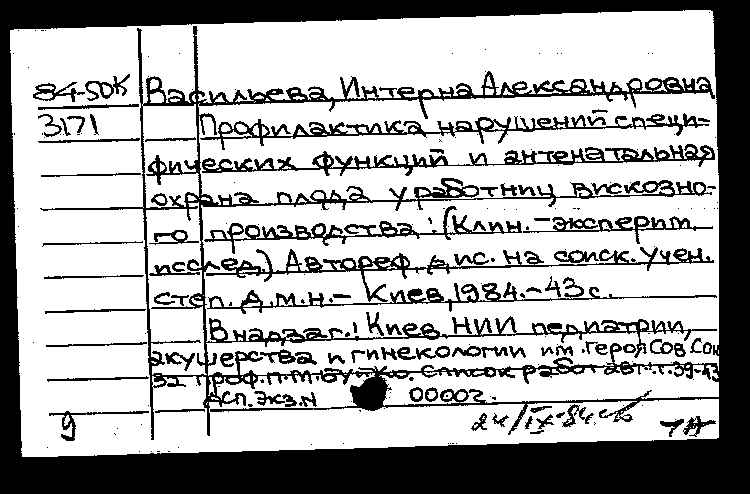 84-50К Васильева, Интерна Александровна
3171 Профилактика нарушений специ-
фических функций и антенатальная
охрана плода у работниц вискозно-
го производства: (Клин.-эксперим.
исслед.) Автореф. дис. на соиск. учен.
степ. д.м.н. - Киев, 1984. - 43 с.
В надзаг.: Киев. НИИ педиатрии,
акушерства и гинекологии им. героя Сов. Сою
за проф. П.М. Буйко. Список работ авт.: с. 39-43
дсп. экз. N 00002.
9 24/IX-84